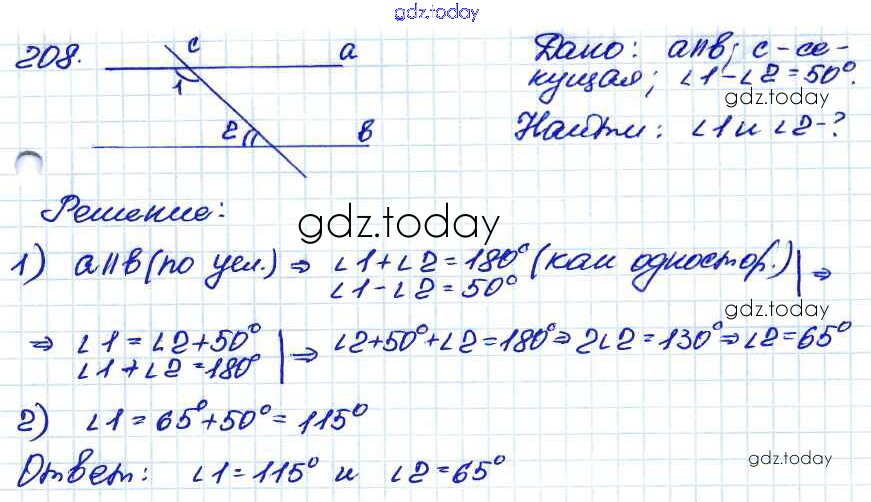 gdz.today
208.
c
a
1
2
в
Дано: a∥в; c-се-
кущая; ∠1-∠2=50°.
gdz.today
Найти: ∠1 и ∠2-?
Решение:
gdz.today
1) a∥в (по усл.) ⇒ ∠1+∠2=180° (как одностор.) ⇒
∠1-∠2=50°
gdz.today
⇒ ∠1=∠2+50° ⇒ ∠2+50°+∠2=180° ⇒ 2∠2=130° ⇒ ∠2=65°
∠1+∠2=180°
2) ∠1=65°+50°=115°
Ответ: ∠1=115° и ∠2=65°
gdz.today